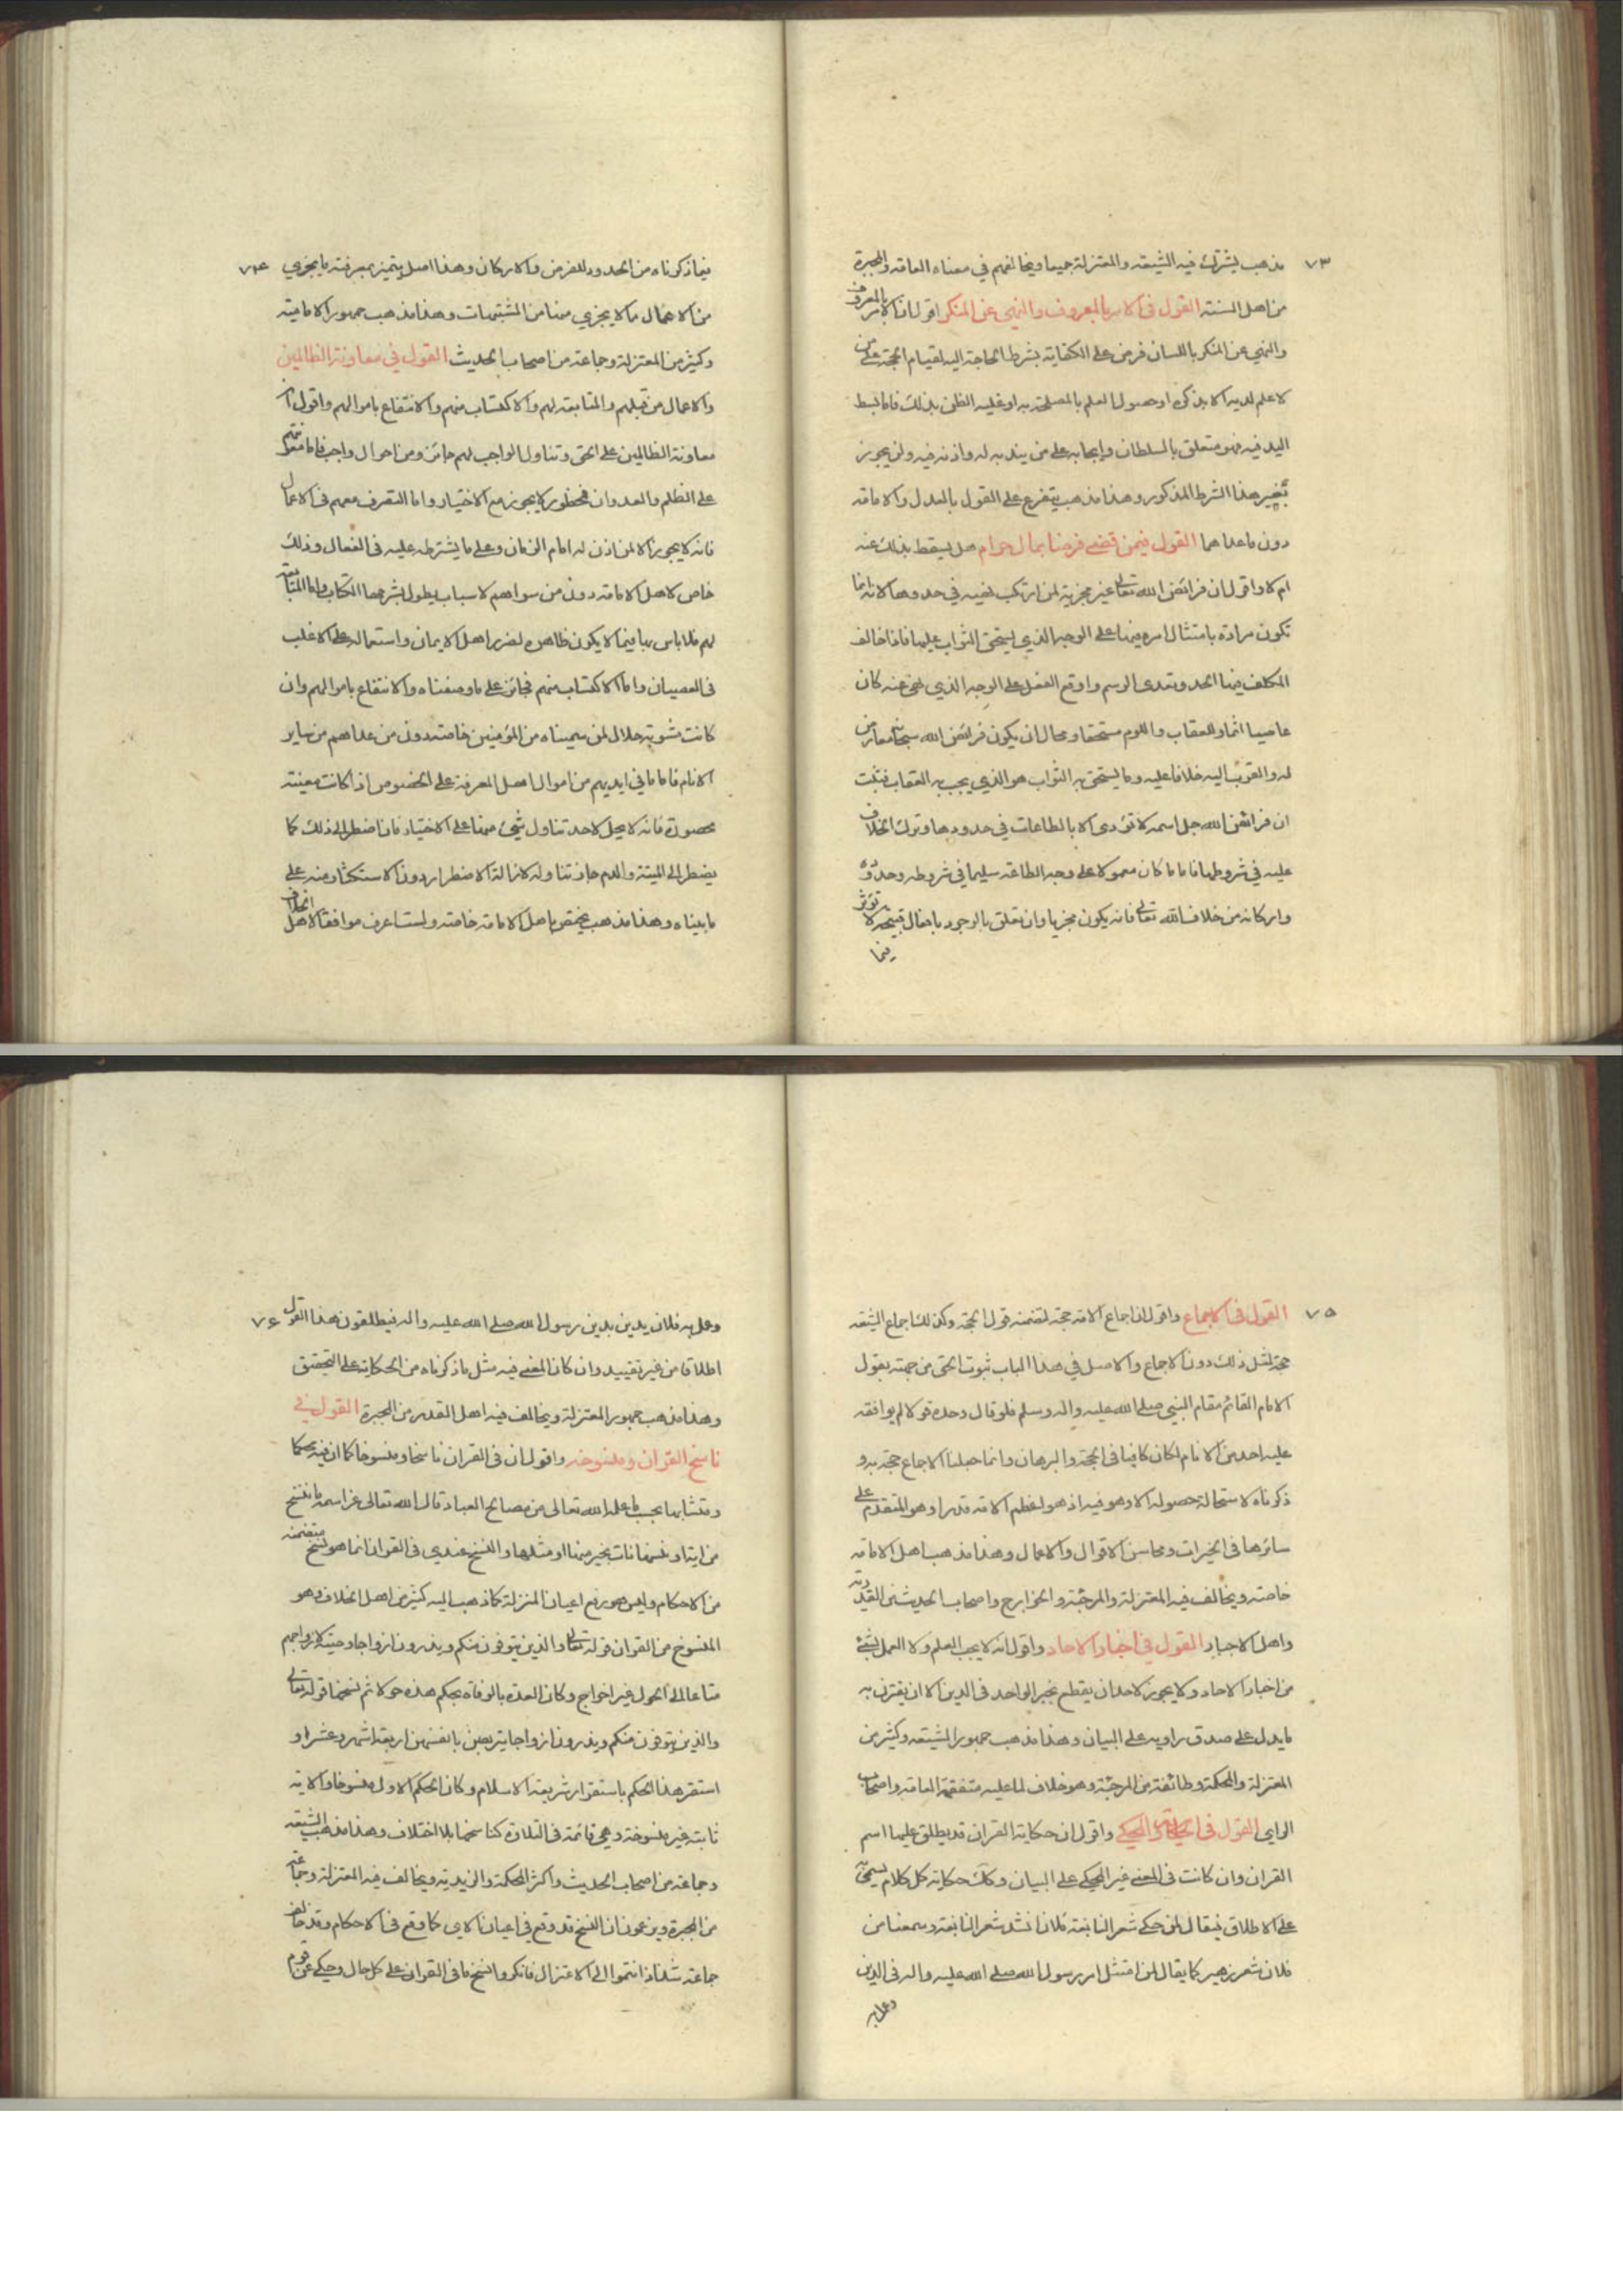 ٧٣
مذهب يشترك فيه الشيعة والمعتزلة جميعا ويخالفهم في معناه العامة والمجبرة
من اهل السنة القول في الامر بالمعروف والنهي عن المنكر اقول ان الامر بالمعروف
والنهي عن المنكر باللسان فرض على الكفاية بشرط الحاجة اليه لقيام الحجة على من
لا علم لديه الا بذكره او حصول العلم بالمصلحة به او غلبة الظن بذلك فاما بسط
اليد فيه فهو متعلق بالسلطان وايجابه على من يندبه له واذنه فيه ولن يجوز
تغيير هذا الشرط المذكور وهذا مذهب يتفرع على القول بالعدل والامامة
دون ماعداهما القول فيمن قضى فرضا بمال حرام هل يسقط بذلك عنه
ام لا واقول ان فرائض الله تعالى غير مجزية لمن ارتكب نهيه في حدودها لانه انما
تكون مرادة بامتثال امره فيها على الوجه الذي يستحق الثواب عليها فاذا خالف
المكلف فيها الحد وتعدى الرسم واوقع الفعل على الوجه الذي نهى عنه كان
عاصيا اثما وللعقاب واللوم مستحقا ومحال ان يكون فرائض الله سبحانه معاصي
له والقرب اليه خلافا عليه وما يستحق به الثواب هو الذي يجب به العقاب فثبت
ان فرائض الله جل اسمه لا تؤدى الا بالطاعات في حدودها وترك الخلاف
عليه في شروطها فاما ما كان معمولا على وجه الطاعة سليما في شروطه وحدوده
واركانه من خلاف الله تعالى فانه يكون مجزيا وان تعلق بالوجود بافعال قبيحة لا تؤثر
فيما
٧٤
فيما ذكرناه من الحدود للفرض والاركان وهذا اصل يتميز بمعرفته ما يجزي
من الاعمال مما لا يجزي منها من المشتبهات وهذا مذهب جمهور الامامية
وكثير من المعتزلة وجماعة من اصحاب الحديث القول في معاونة الظالمين
والاعمال من قبلهم والمتابعة لهم والاكتساب منهم والانتفاع باموالهم واقول ان
معاونة الظالمين على الحق وتناول الواجب لهم جائز ومن احوال واجب فاما معونتهم
على الظلم والعدوان فمحظور لا يجوز مع الاختيار واما التصرف معهم في الاعمال
فانه لا يجوز الا لمن اذن له امام الزمان وعلى ما يشترطه عليه في الفعال وذلك
خاص لاهل الامامة دون من سواهم لاسباب يطول بشرحها الكتاب واما المتابعة
لهم فلا باس بها فيما لا يكون ظاهره لضرر اهل الايمان واستعماله على الاغلب
في العصيان واما الاكتساب منهم فجائز على ما وصفناه والانتفاع باموالهم وان
كانت مشوبة حلال لمن سميناه من المؤمنين خاصة دون من عداهم من ساير
الانام فاما ما في ايديهم من اموال اهل المعرفة على الخصوص اذا كانت معينة
محصورة فانه لا يحل لاحد تناول شيء منها على الاختيار فان اضطر الى ذلك كما
يضطر الى الميتة والدم جاز تناوله لازالة الاضطرار دون الاستكثار منه على
ما بيناه وهذا مذهب يختص باهل الامامة خاصة ولست اعرف موافقا لاهل الخلاف
٧٥
القول في الاجماع واقول ان اجماع الامة حجة لتضمنه قول الحجة وكذلك اجماع الشيعة
حجة لمثل ذلك دون الاجماع والاصل في هذا الباب ثبوت الحق من جهته بقول
الامام القائم مقام النبي صلى الله عليه واله وسلم فلو قال وحده قولا لم يوافقه
عليه احد من الانام لكان كافيا في الحجة والبرهان وانما جعلنا الاجماع حجة به و
ذكرناه لاستحالة حصوله الا وهو فيه اذ هو اعظم الامة قدرا وهو المتقدم على
سائرها في الخيرات ومحاسن الاقوال والاعمال وهذا مذهب اهل الامامة
خاصة ويخالف فيه المعتزلة والمرجئة والخوارج واصحاب الحديث من القدرية
واهل الاجبار القول في اخبار الاحاد واقول انه لا يجب العلم ولا العمل بشئ
من اخبار الاحاد ولا يجوز لاحد ان يقطع بخبر الواحد في الدين الا ان يقترن به
ما يدل على صدق راويه على البيان وهذا مذهب جمهور الشيعة وكثير من
المعتزلة والمحكمة وطائفة من المرجئة وهو خلاف لما عليه متفقهة العامة واصحاب
الراي القول في الحكاية والمحكي واقول ان حكاية القران قد يطلق عليها اسم
القران وان كانت في المعنى غير المحكي على البيان وكذلك حكاية كل كلام يسمى به
على الاطلاق فيقال لمن حكى شعر النابغة فلان انشد شعر النابغة وسمعنا من
فلان شعر زهير كما يقال لمن امتثل امر رسول الله صلى الله عليه واله في الدين
وعمل به
٧٦
وعمل به فلان يدين بدين رسول الله صلى الله عليه واله فيطلقون هذا القول
اطلاقا من غير تقييد وان كان المعنى فيه مثل ما ذكرناه من الحكاية على التحقيق
وهذا مذهب جمهور المعتزلة ويخالف فيه اهل القدر من المجبرة القول في
ناسخ القران ومنسوخه واقول ان في القران ناسخا ومنسوخا كما ان فيه محكما
ومتشابها بحسب ما علمه الله تعالى من مصالح العباد قال الله تعالى عز اسمه ما ننسخ
من اية او ننسها نات بخير منها او مثلها والنسخ عندي في القران انما هو نسخ متضمنه
من الاحكام وليس هو رفع اعيان المنزلة كما ذهب اليه كثير من اهل الخلاف وهو
المنسوخ من القران قوله تعالى والذين يتوفون منكم ويذرون ازواجا وصية لازواجهم
متاعا الى الحول غير اخراج وكان العدة بالوفاة بحكم هذه حولا ثم نسخها قوله تعالى
والذين يتوفون منكم ويذرون ازواجا يتربصن بانفسهن اربعة اشهر وعشرا و
استقر هذا الحكم باستقرار شريعة الاسلام وكان الحكم الاول منسوخا والاية
ثابتة غير منسوخة وهي قائمة في التلاوة كناسخها بلا اختلاف وهذا مذهب الشيعة
وجماعة من اصحاب الحديث واكثر المحكمة والزيدية ويخالف فيه المعتزلة وجماعة
من المجبرة ويزعمون ان النسخ قد وقع في اعيان الاي كما وقع في الاحكام وقد خالف
جماعة شذاذ انتموا الى الاعتزال فانكروا نسخ ما في القران على كل حال وحكي عن قوم